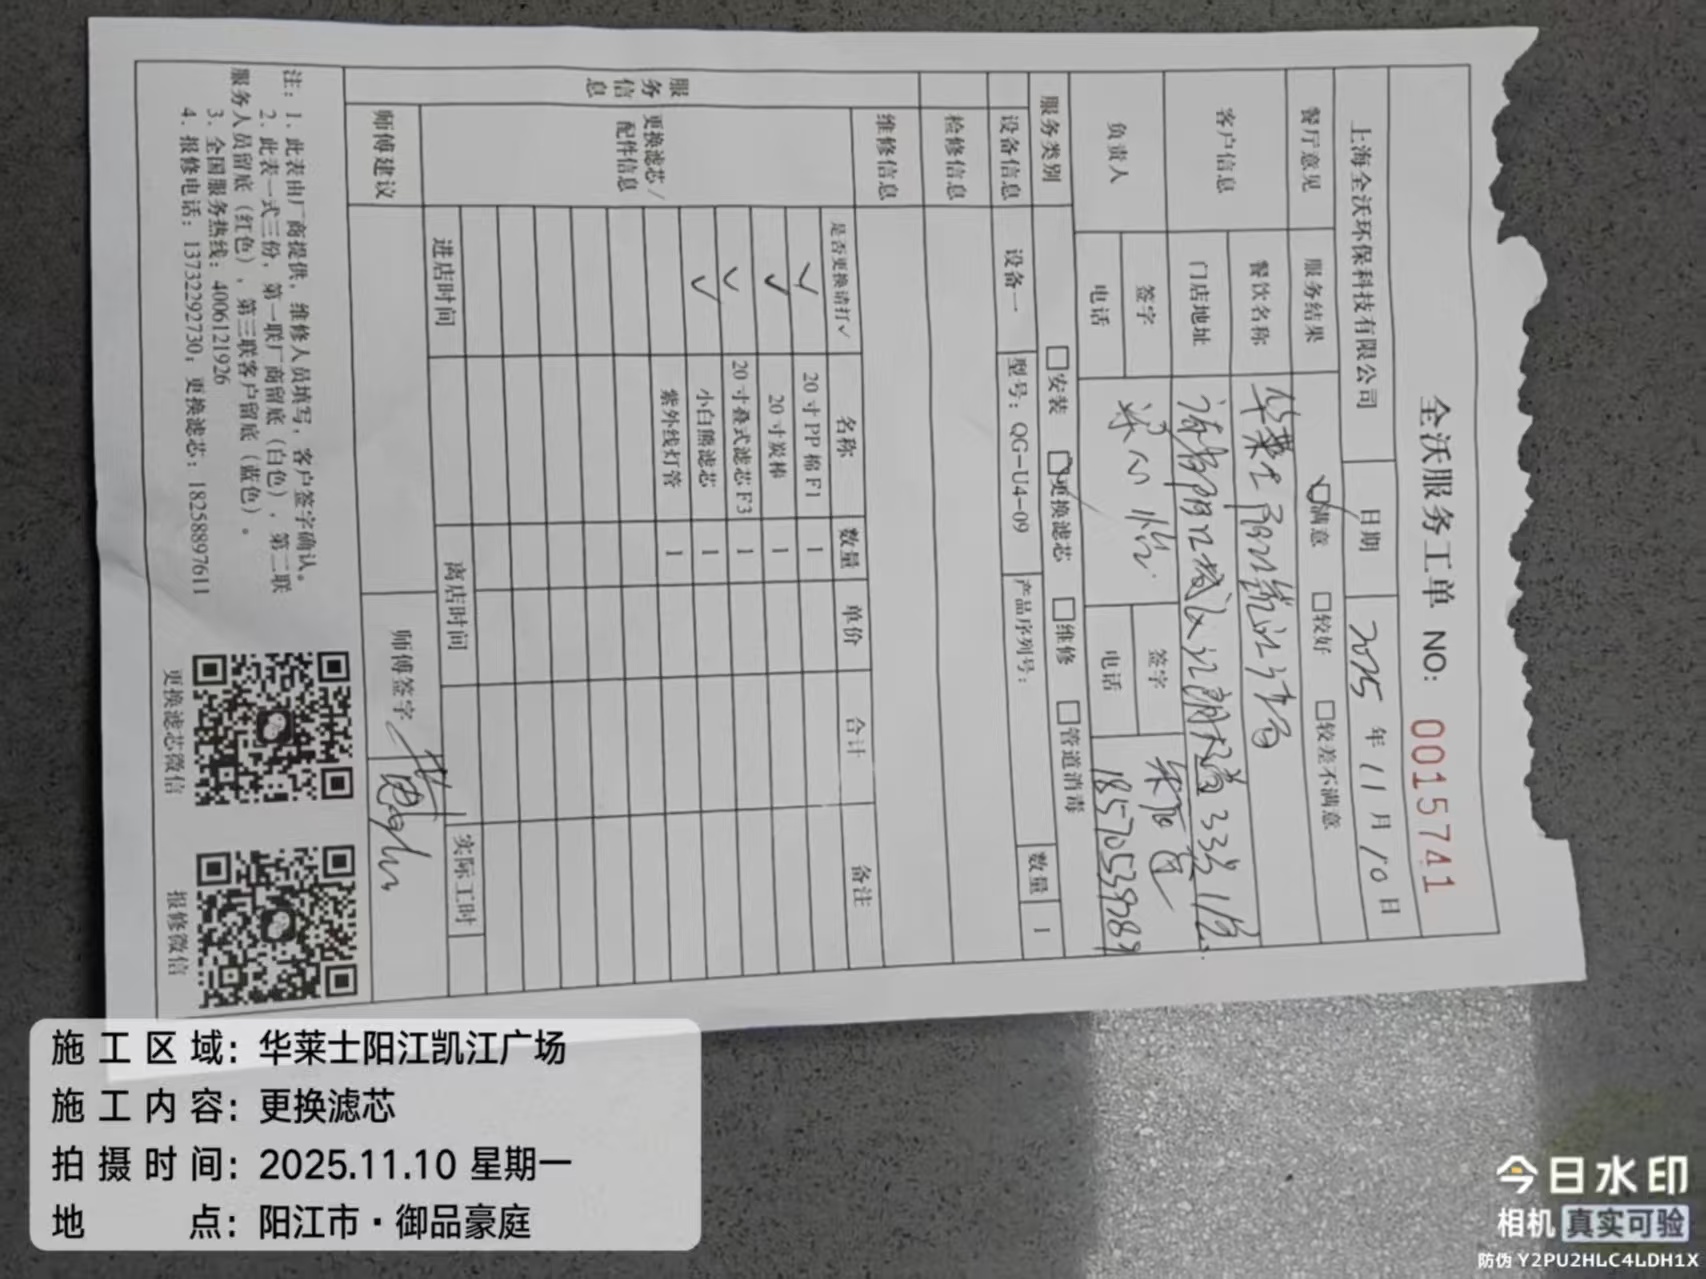 全沃服务工单 NO: 00015741
上海全沃环保科技有限公司 日期 2025 年 11 月 10 日
餐厅意见 服务结果 ☑满意 □较好 □较差不满意
客户信息 餐饮名称 华莱士阳江凯江广场店
门店地址 阳江 大道33号1层
负责人 签字 梁心怡 签字
电话 电话 18570539789
服务类别 □安装 ☑更换滤芯 □维修 □管道消毒
设备信息 设备一 型号：QG-U4-09 产品序列号： 数量 1
检修信息
维修信息
服务信息
更换滤芯/配件信息
是否更换请打✓ 名称 数量 单价 合计 备注
✓ 20寸PP棉F1 1
✓ 20寸炭棒 1
✓ 20寸叠式滤芯F3 1
✓ 小白熊滤芯 1
紫外线灯管 1
进店时间 离店时间 实际工时
师傅建议 师傅签字
注：1. 此表由厂商提供，维修人员填写，客户签字确认。
2. 此表一式三份，第一联厂商留底（白色），第二联
服务人员留底（红色），第三联客户留底（蓝色）。
3. 全国服务热线：4006121926
4. 报修电话：13732292730；更换滤芯：18258897611
更换滤芯微信 报修微信
施工区域：华莱士阳江凯江广场
施工内容：更换滤芯
拍摄时间：2025.11.10 星期一
地点：阳江市·御品豪庭
今日水印
相机 真实可验
防伪 Y2PU2HLC4LDH1X